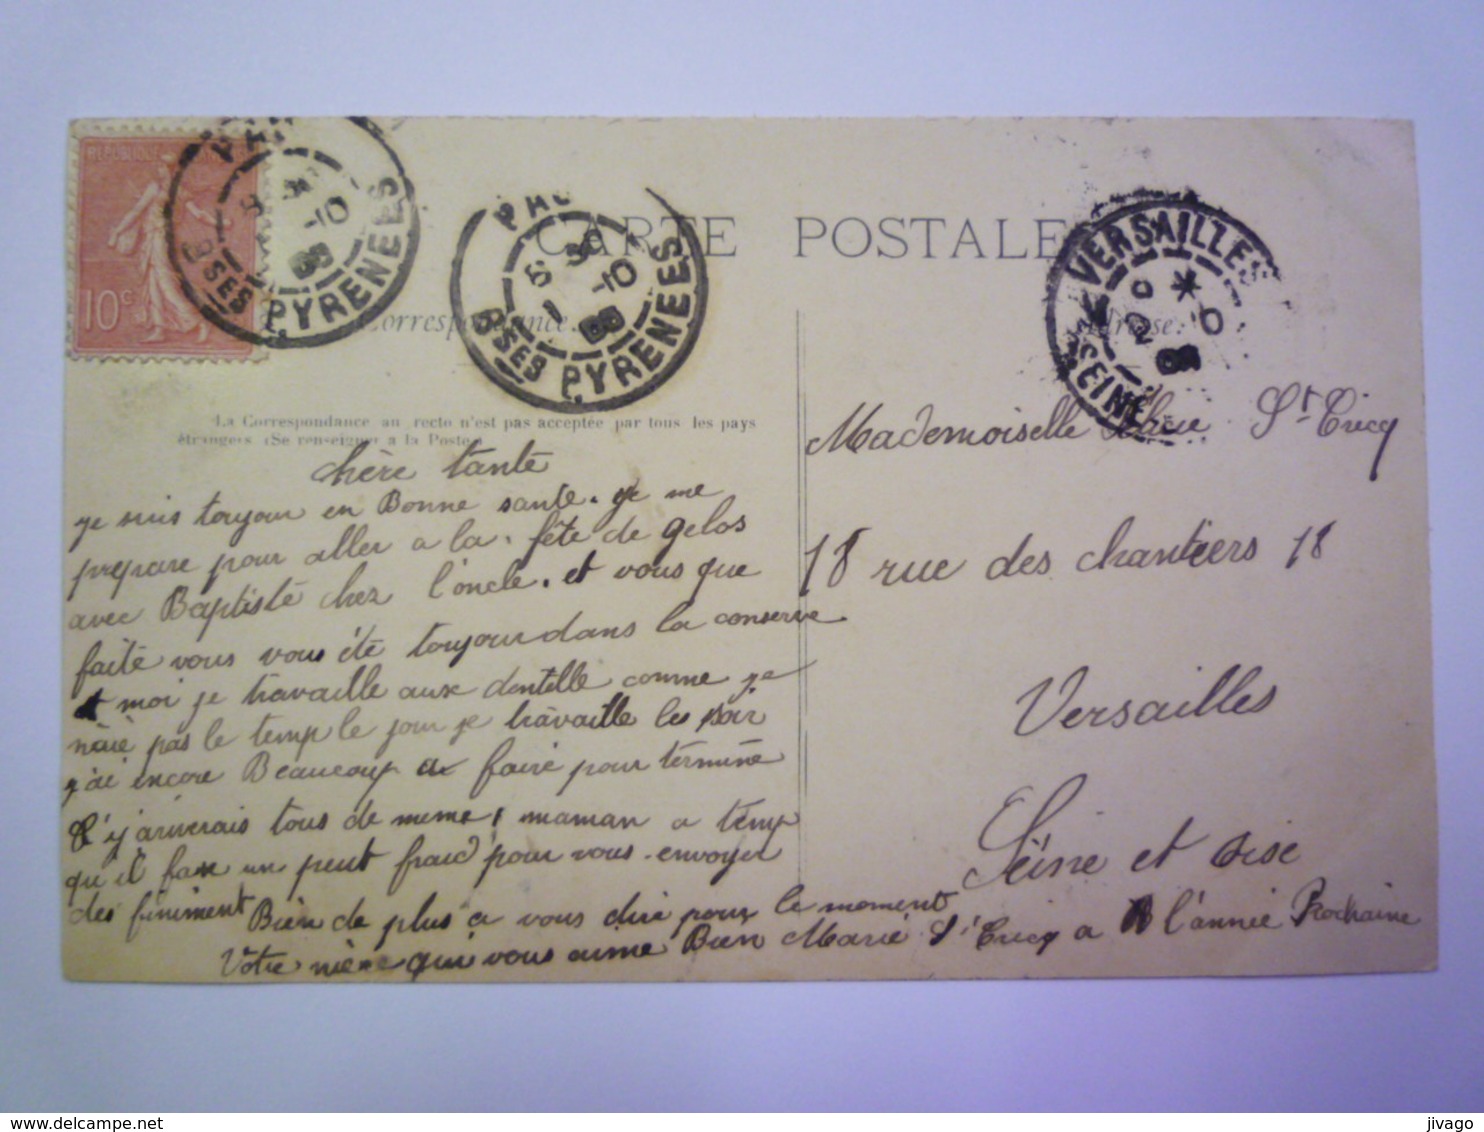 REPUBLIQUE
10c
PAU
BSES PYRENEES
PAU
5 30
1 -10
BSES PYRENEES
VERSAILLES
SEINE
CARTE POSTALE
Correspondance
Adresse
La Correspondance au recto n'est pas acceptée par tous les pays
étrangers (Se renseigner à la Poste)
chère tante
je suis toujour en Bonne sante. je me
prepare pour aller a la. fête de gelos
avec Baptiste chez l'oncle. et vous que
faite vous vous été toujour dans la conserve
et moi je travaille aux dentelle comme je
naie pas le temp le jour je travaille les soir
j'ai encore Beaucoup a faire pour terminé
j'y ariverais tous de meme, maman a temp
qu'il fax un peut fraid pour vous. envoyer
des finiment Bien de plus a vous dire pour le moment
Votre nièce qui vous aime Bien Marie St Cricq a l'année Prochaine
Mademoiselle Marie St Cricq
18 rue des chantiers 18
Versailles
Seine et oise
jivago